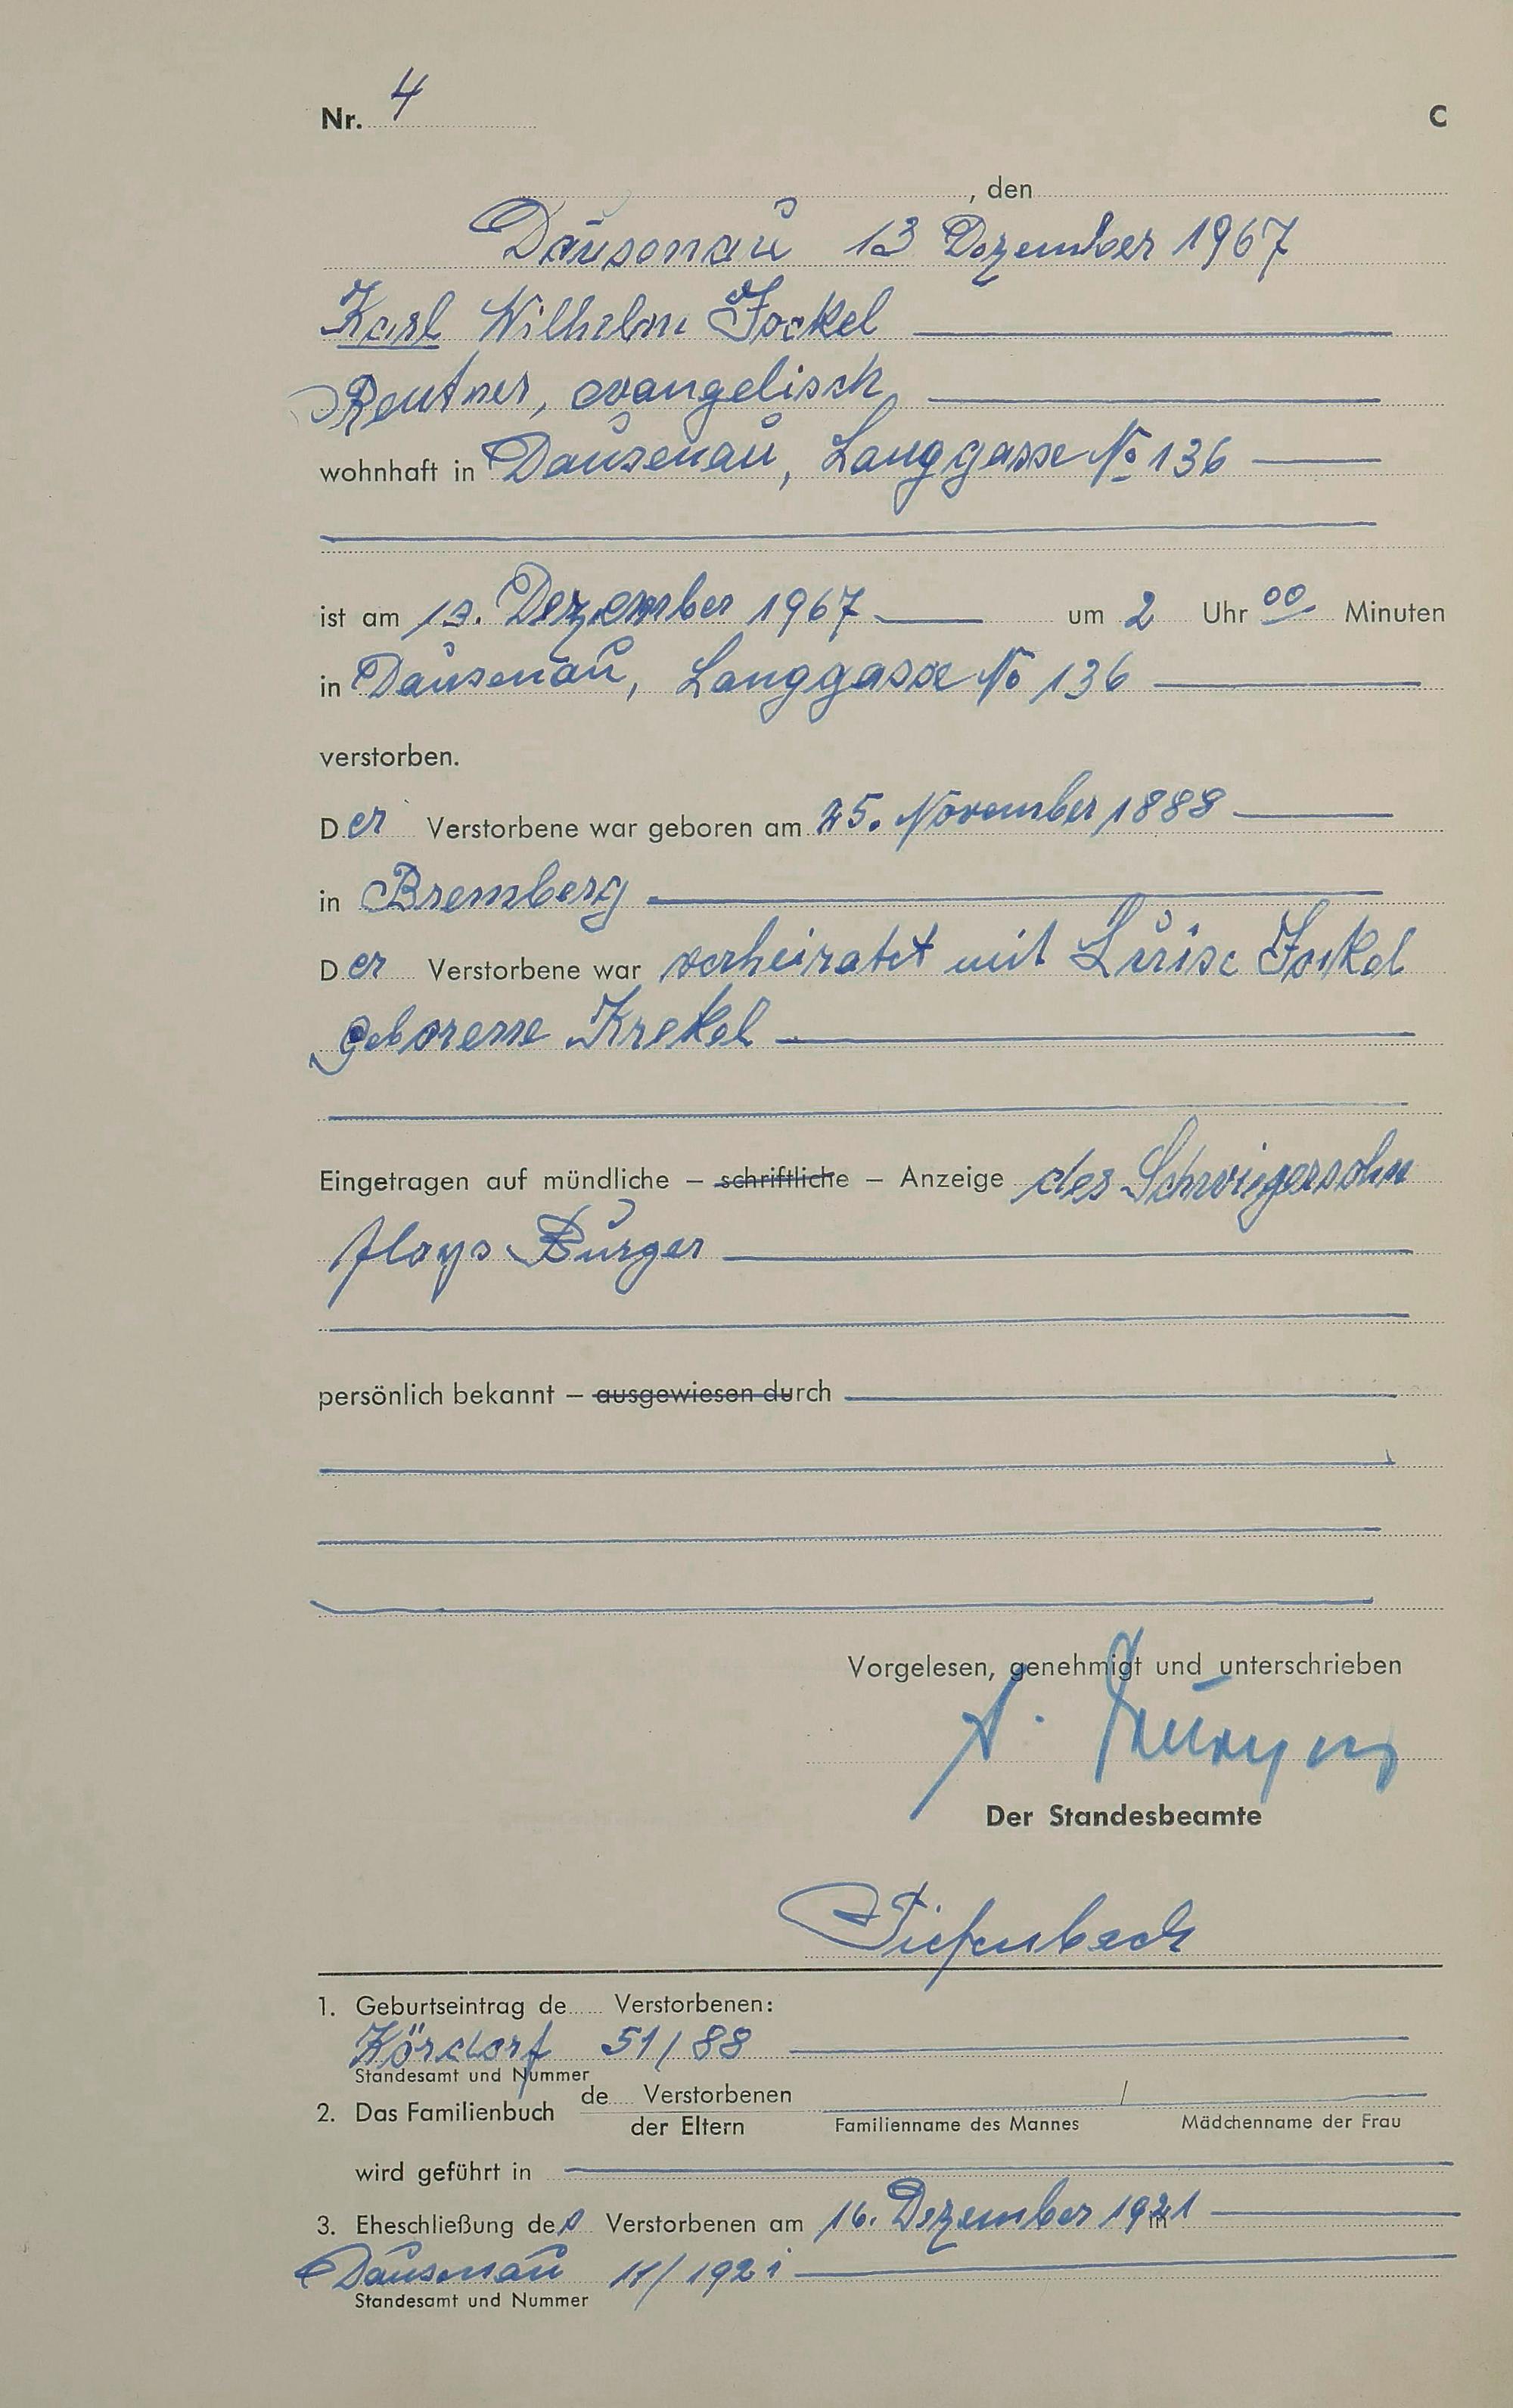 Nr. 4
C
, den
Dausenau 13 Dezember 1967
Karl Wilhelm Fockel
Rentner, evangelisch
wohnhaft in Dausenau, Langgasse No 136
ist am 13. Dezember 1967 um 2 Uhr 00 Minuten
in Dausenau, Langgasse No 136
verstorben.
Der Verstorbene war geboren am 25. November 1888
in Bremberg
Der Verstorbene war verheiratet mit Luise Fockel
geborene Krekel
Eingetragen auf mündliche – schriftliche – Anzeige des Schwiegersohn
Aloys Burger
persönlich bekannt – ausgewiesen durch
Vorgelesen, genehmigt und unterschrieben
A.
Der Standesbeamte
Tiefenbach
1. Geburtseintrag de Verstorbenen:
Kördorf 51/88
Standesamt und Nummer
2. Das Familienbuch de Verstorbenen /
der Eltern Familienname des Mannes Mädchenname der Frau
wird geführt in
3. Eheschließung des Verstorbenen am 16. Dezember 1921
Dausenau 11/1921
Standesamt und Nummer